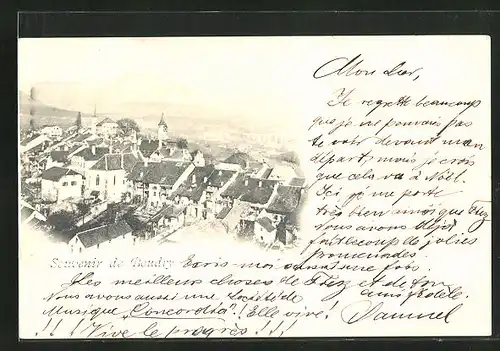 Mon cher,
Je regrette beaucoup
que je ne pouvais pas
te voir devant mon
départ, mais je crois
que cela va à Noël.
Ici je me porte
très bien ainsi que
nous avons déjà
fait beaucoup de jolies
promenades.
Souvenir de Boudry
Ecris-moi une fois
Les meilleures choses de et de ton
Nous avons aussi une Société de
ami fidèle.
Musique "Concordia"! Elle vive!
Samuel
!!! Vive le progrès!!!